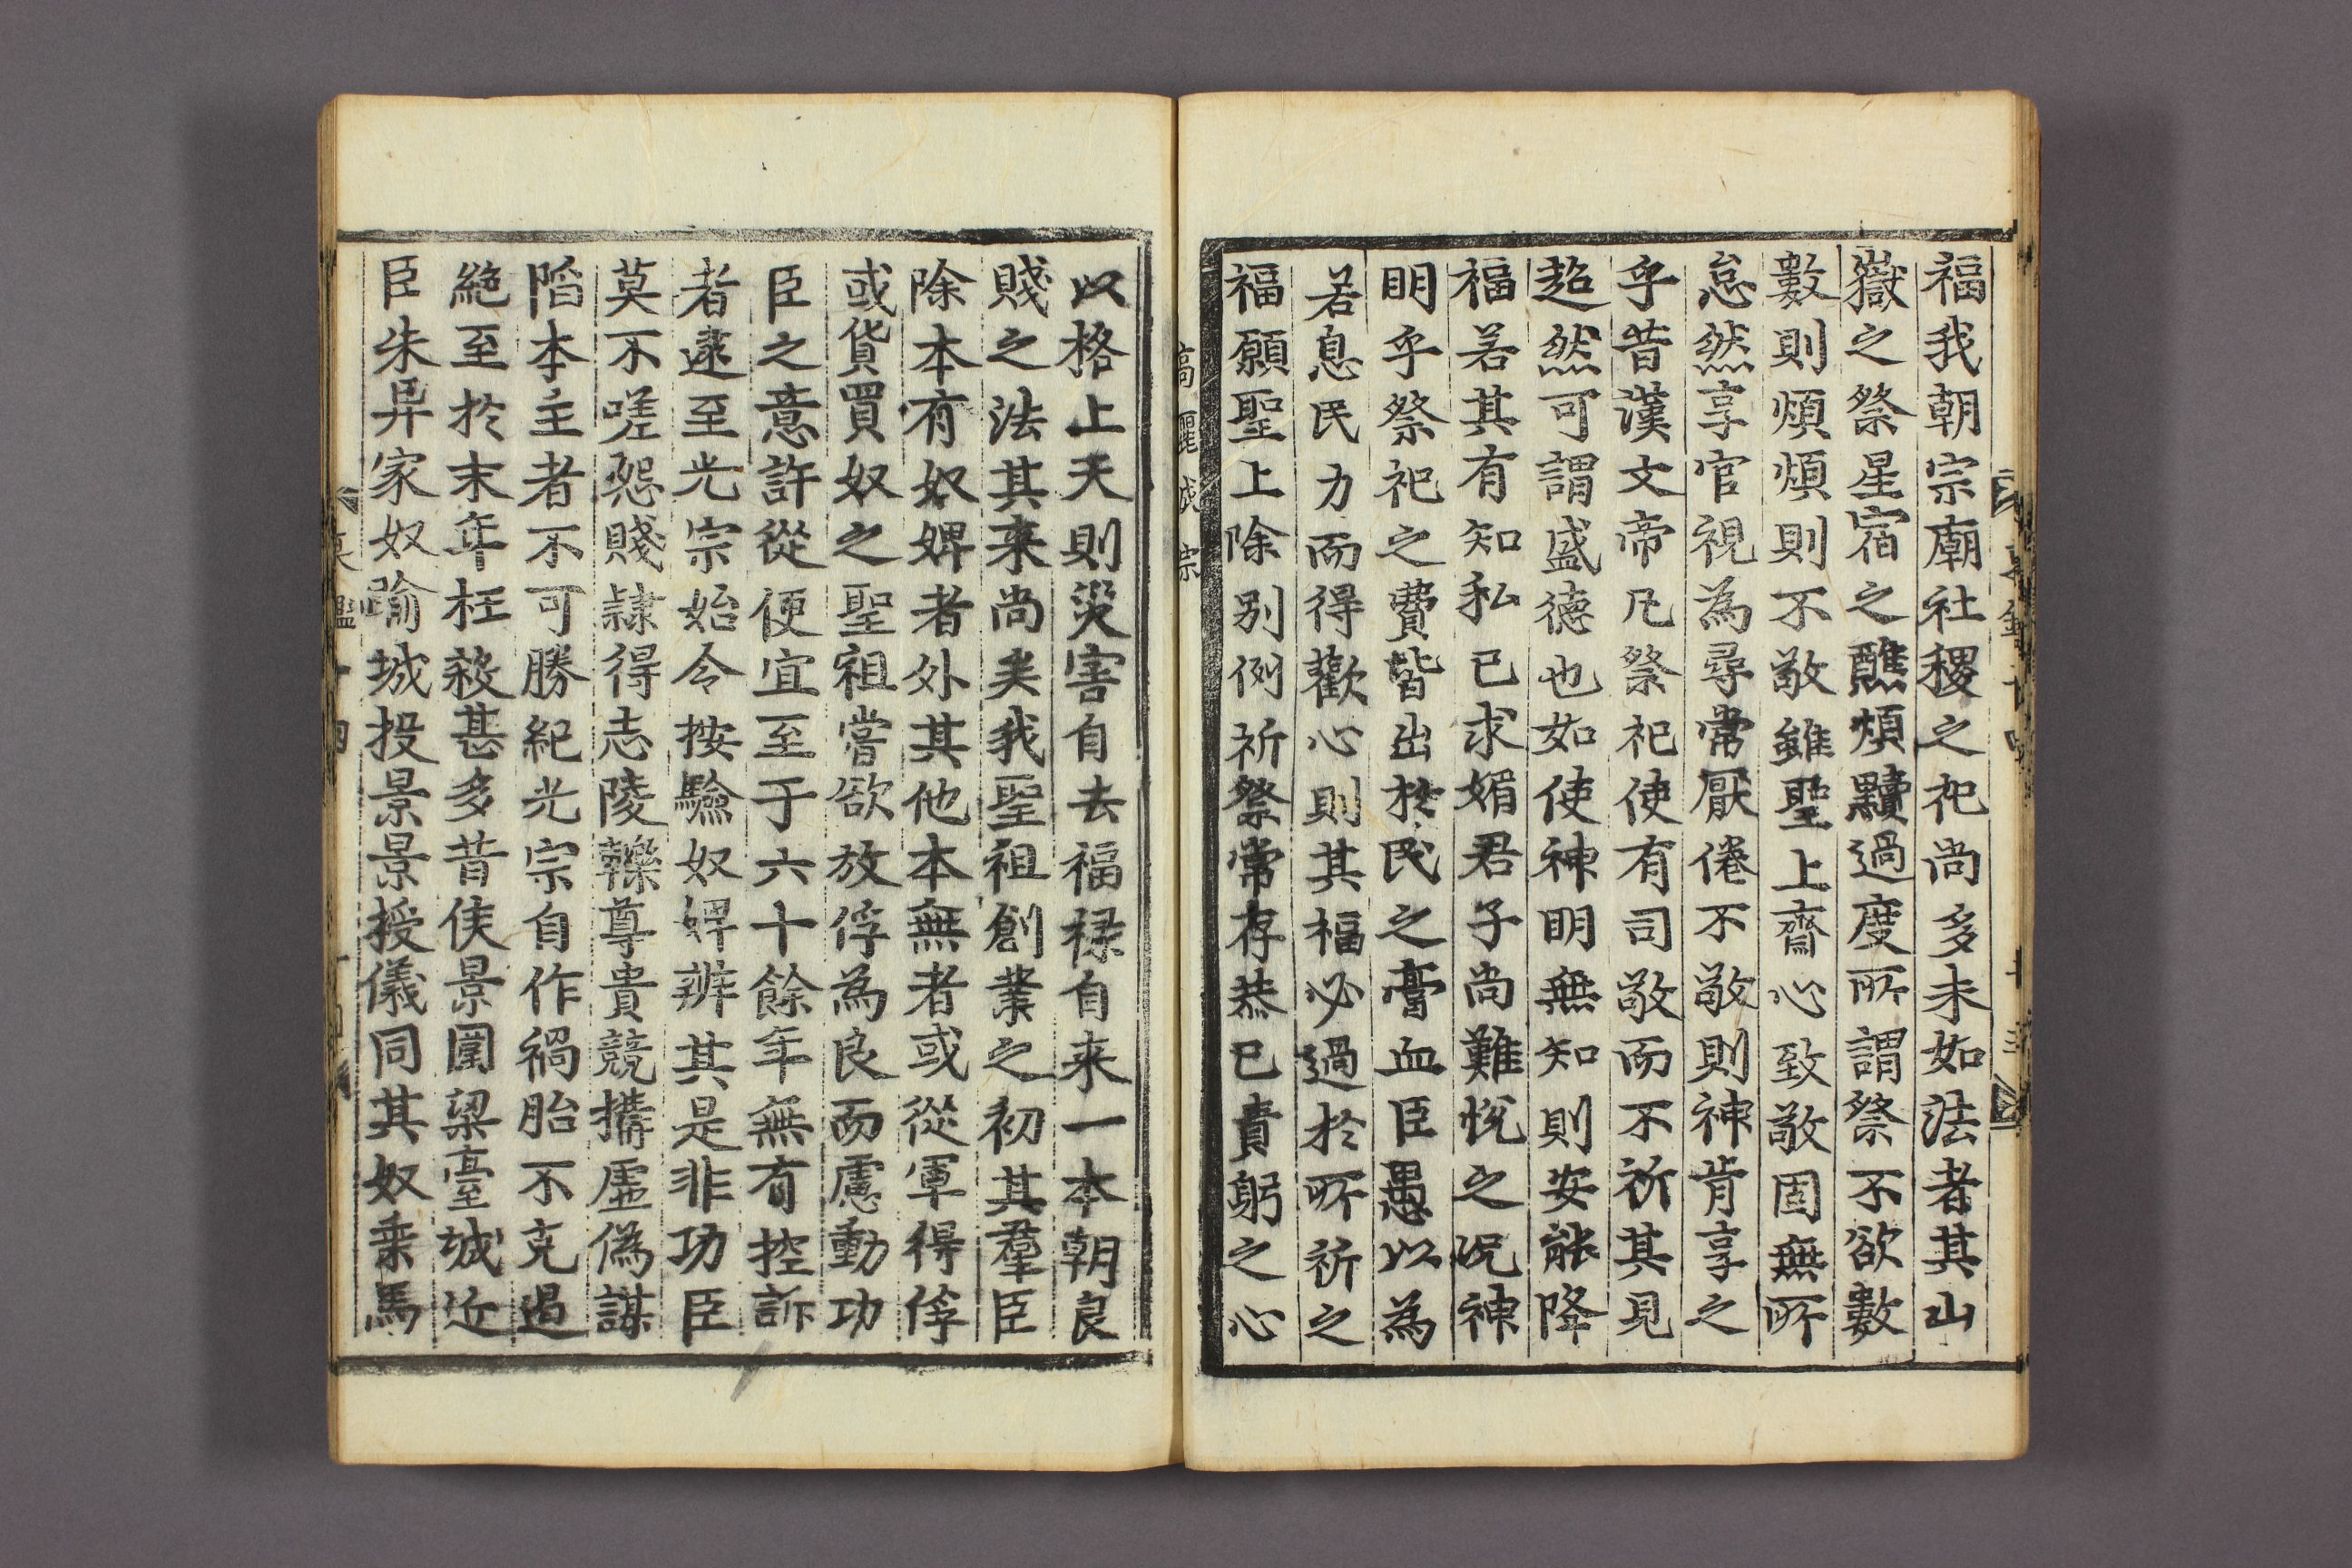 福我朝宗廟社稷之祀尚多未如法者其山
嶽之祭星宿之醮煩黷過度所謂祭不欲數
數則煩煩則不敬雖聖上齋心致敬固無所
怠然享官視為尋常厭倦不敬則神肯享之
乎昔漢文帝凡祭祀使有司敬而不祈其見
超然可謂盛德也如使神明無知則安能降
福若其有知私已求媚君子尚難悅之况神
明乎祭祀之費皆出於民之膏血臣愚以為
若息民力而得歡心則其福必過於所祈之
福願聖上除別例祈祭常存恭已責躬之心
高麗成宗
以格上天則災害自去福祿自来一本朝良
賤之法其来尚矣我聖祖創業之初其羣臣
除本有奴婢者外其他本無者或從軍得俘
或貨買奴之聖祖嘗欲放俘為良而慮動功
臣之意許從便宜至于六十餘年無有控訴
者逮至光宗始令按驗奴婢辨其是非功臣
莫不嗟怨賤隷得志陵轢尊貴競搆虛僞謀
陷本主者不可勝紀光宗自作禍胎不克遏
絶至於末年枉殺甚多昔侯景圍梁臺城近
臣朱异家奴踰城投景景授儀同其奴乗馬